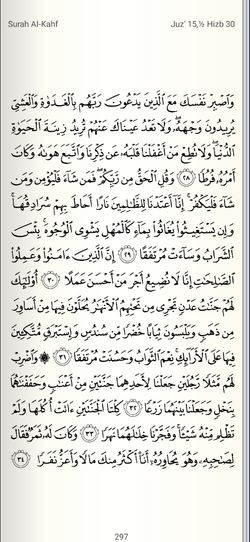 Surah Al-Kahf
Juz' 15,½ Hizb 30
وَٱصۡبِرۡ نَفۡسَكَ مَعَ ٱلَّذِينَ يَدۡعُونَ رَبَّهُم بِٱلۡغَدَوٰةِ وَٱلۡعَشِيِّ
يُرِيدُونَ وَجۡهَهُۥۖ وَلَا تَعۡدُ عَيۡنَاكَ عَنۡهُمۡ تُرِيدُ زِينَةَ ٱلۡحَيَوٰةِ
ٱلدُّنۡيَاۖ وَلَا تُطِعۡ مَنۡ أَغۡفَلۡنَا قَلۡبَهُۥ عَن ذِكۡرِنَا وَٱتَّبَعَ هَوَىٰهُ وَكَانَ
أَمۡرُهُۥ فُرُطٗا ٢٨ وَقُلِ ٱلۡحَقُّ مِن رَّبِّكُمۡۖ فَمَن شَآءَ فَلۡيُؤۡمِن وَمَن
شَآءَ فَلۡيَكۡفُرۡۚ إِنَّآ أَعۡتَدۡنَا لِلظَّٰلِمِينَ نَارًا أَحَاطَ بِهِمۡ سُرَادِقُهَاۚ
وَإِن يَسۡتَغِيثُواْ يُغَاثُواْ بِمَآءٖ كَٱلۡمُهۡلِ يَشۡوِي ٱلۡوُجُوهَۚ بِئۡسَ
ٱلشَّرَابُ وَسَآءَتۡ مُرۡتَفَقًا ٢٩ إِنَّ ٱلَّذِينَ ءَامَنُواْ وَعَمِلُواْ
ٱلصَّٰلِحَٰتِ إِنَّا لَا نُضِيعُ أَجۡرَ مَنۡ أَحۡسَنَ عَمَلًا ٣٠ أُوْلَٰٓئِكَ
لَهُمۡ جَنَّٰتُ عَدۡنٖ تَجۡرِي مِن تَحۡتِهِمُ ٱلۡأَنۡهَٰرُ يُحَلَّوۡنَ فِيهَا مِنۡ أَسَاوِرَ
مِن ذَهَبٖ وَيَلۡبَسُونَ ثِيَابًا خُضۡرٗا مِّن سُندُسٖ وَإِسۡتَبۡرَقٖ مُّتَّكِـِٔينَ
فِيهَا عَلَى ٱلۡأَرَآئِكِۚ نِعۡمَ ٱلثَّوَابُ وَحَسُنَتۡ مُرۡتَفَقٗا ٣١ ۞ وَٱضۡرِبۡ
لَهُم مَّثَلٗا رَّجُلَيۡنِ جَعَلۡنَا لِأَحَدِهِمَا جَنَّتَيۡنِ مِنۡ أَعۡنَٰبٖ وَحَفَفۡنَٰهُمَا
بِنَخۡلٖ وَجَعَلۡنَا بَيۡنَهُمَا زَرۡعٗا ٣٢ كِلۡتَا ٱلۡجَنَّتَيۡنِ ءَاتَتۡ أُكُلَهَا وَلَمۡ
تَظۡلِم مِّنۡهُ شَيۡـٔٗاۚ وَفَجَّرۡنَا خِلَٰلَهُمَا نَهَرٗا ٣٣ وَكَانَ لَهُۥ ثَمَرٞ فَقَالَ
لِصَٰحِبِهِۦ وَهُوَ يُحَاوِرُهُۥٓ أَنَا۠ أَكۡثَرُ مِنكَ مَالٗا وَأَعَزُّ نَفَرٗا ٣٤
297